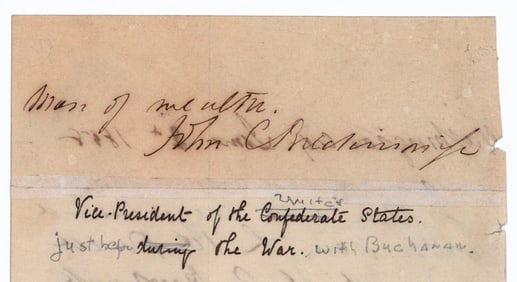 Man of wealth.
John C Breckinridge
United
Vice-President of the Confederate States.
just before during the War. with Buchanan.